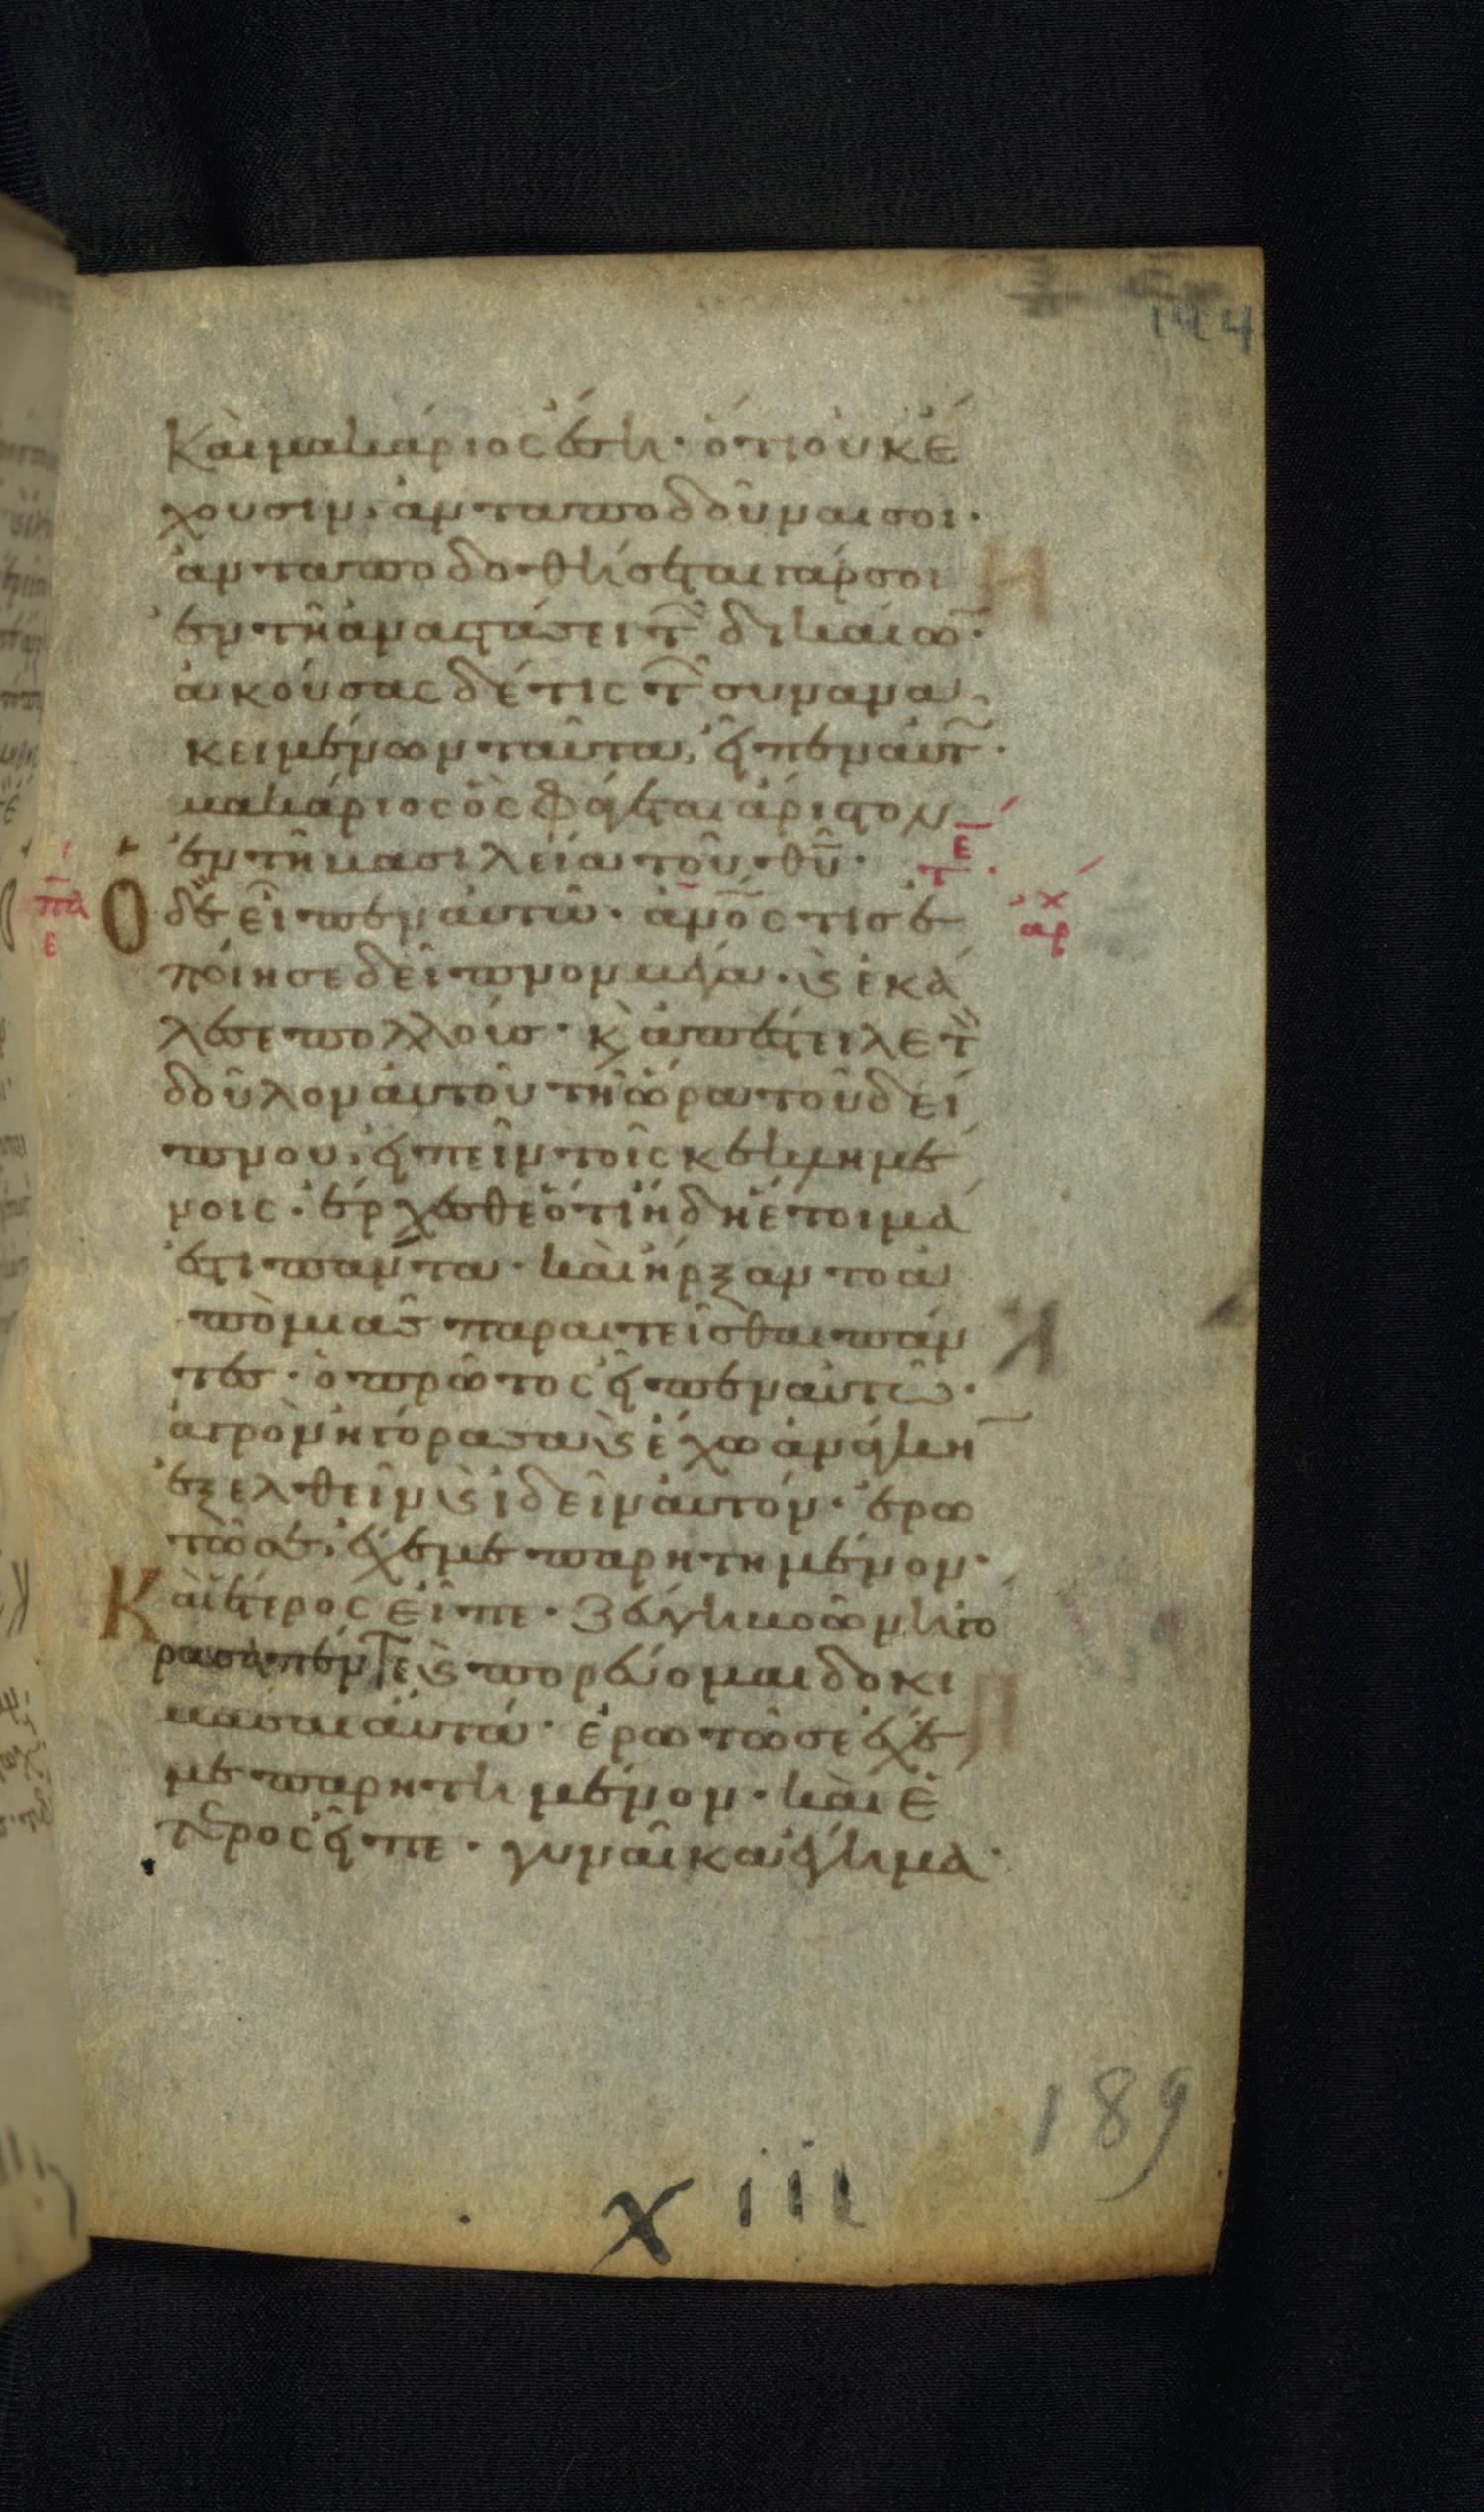 194
Καὶ μακάριος ἔση· ὅτι οὐκ ἔ
χουσιν, ἀνταποδοῦναι σοι·
ἀνταποδοθήσεται γάρ σοι
ἐν τῆ ἀναστάσει τῶ δικαίω·
ἀκούσας δέ τις τῶ συνανα
κειμένων ταῦτα, εἶπεν αὐτῶ·
μακάριος ὃς φάγεται ἄριστον
ἐν τῆ βασιλεία τοῦ θῦ·
Ὁ δὲ εἶπεν αὐτῶ· ἄνος τις ἐ
ποίησε δεῖπνον μέγα· καὶ ἐκά
λεσε πολλούς· κ ἀπέστειλε τὸ
δοῦλον αὐτοῦ τῆ ὥρα τοῦ δεί
πνου, εἰπεῖν τοῖς κεκλημέ
νοις· ἔρχεσθε ὅτι ἤδη ἕτοιμά
ἐστι πάντα· καὶ ἤρξαντο ἀ
πὸ μιᾶς παραιτεῖσθαι πάν
τες· ὁ πρῶτος εἶπεν αὐτῶ·
ἀγρὸν ἠγόρασα καὶ ἔχω ἀνάγκη
ἐξελθεῖν καὶ ἰδεῖν αὐτόν· ἐρω
τῶ σε, ἔχε με παρητημένον·
Καὶ ἕτερος εἶπε· ζεύγη βοῶν ἠγό
ρασα πέντε καὶ πορεύομαι δοκι
μάσαι αὐτά· ἐρωτῶ σε ἔχε
με παρητημένον· καὶ ἕ
τερος εἶπε· γυναῖκα ἔγημα·
189
xiii